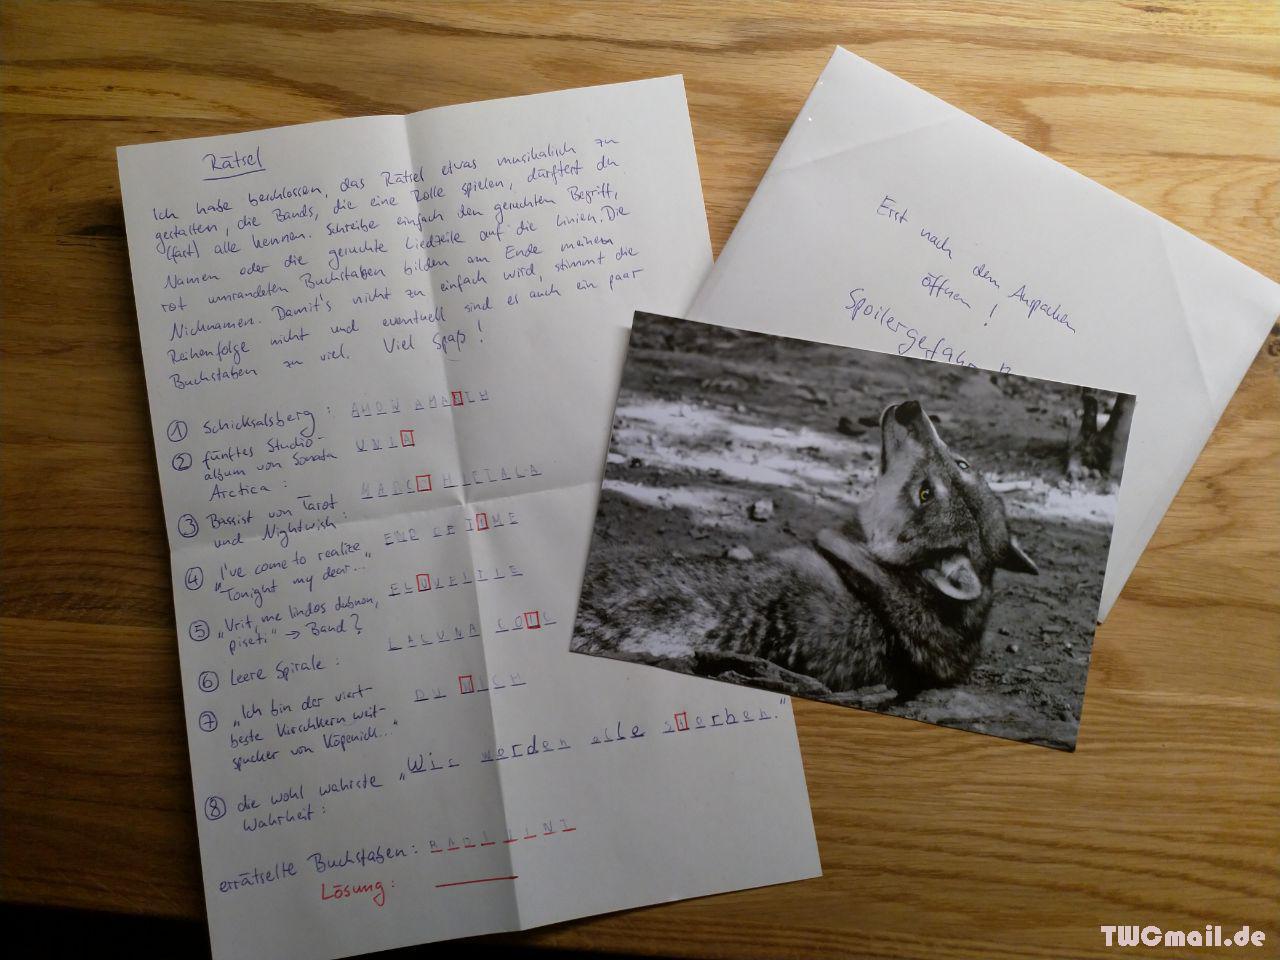 Rätsel
Ich habe beschlossen, das Rätsel etwas musikalisch zu
gestalten, die Bands, die eine Rolle spielen, dürftest du
(fast) alle kennen. Schreibe einfach den gesuchten Begriff,
Namen oder die gesuchte Liedzeile auf die Linien. Die
rot umrandeten Buchstaben bilden am Ende meinen
Nicknamen. Damit's nicht zu einfach wird, stimmt die
Reihenfolge nicht und eventuell sind es auch ein paar
Buchstaben zu viel. Viel Spaß!
① Schicksalsberg: AMON AMARTH
② fünftes Studio-
album von Sonata
Arctica: UNIA
③ Bassist von Tarot
und Nightwish: MARCO HIETALA
④ „I've come to realize
Tonight my dear..." END OF TIME
⑤ „Vrit, me lindos dubnon,
piseti" → Band? ELUVEITIE
⑥ leere Spirale: LACUNA COIL
⑦ „Ich bin der viert-
beste Kirschkernweit-
spucker von Köpenick..." DU NICH
⑧ die wohl wahrste
Wahrheit: „Wir werden alle sterben."
errätselte Buchstaben:
Lösung:
Erst nach dem Auspacken
öffnen!
Spoilergefahr
TWCmail.de